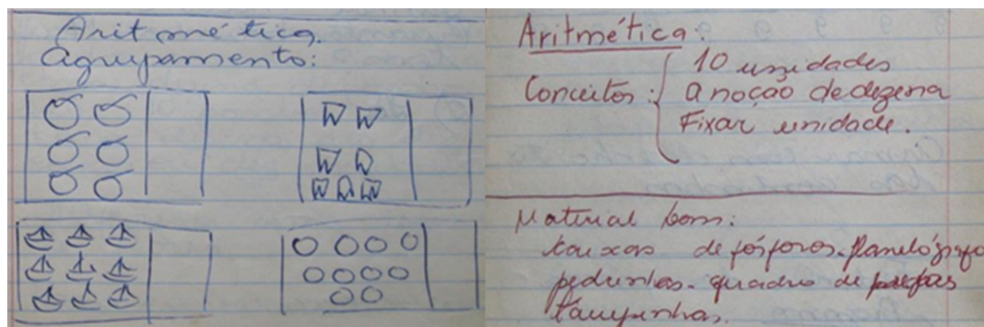 Aritmética.
Agrupamento:
Aritmética:
Conceitos: 10 unidades
a noção de dezena
Fixar unidade.
Material bom:
caixas de fósforos. flanelógrafo
pedrinhas. quadro de pregas
tampinhas.